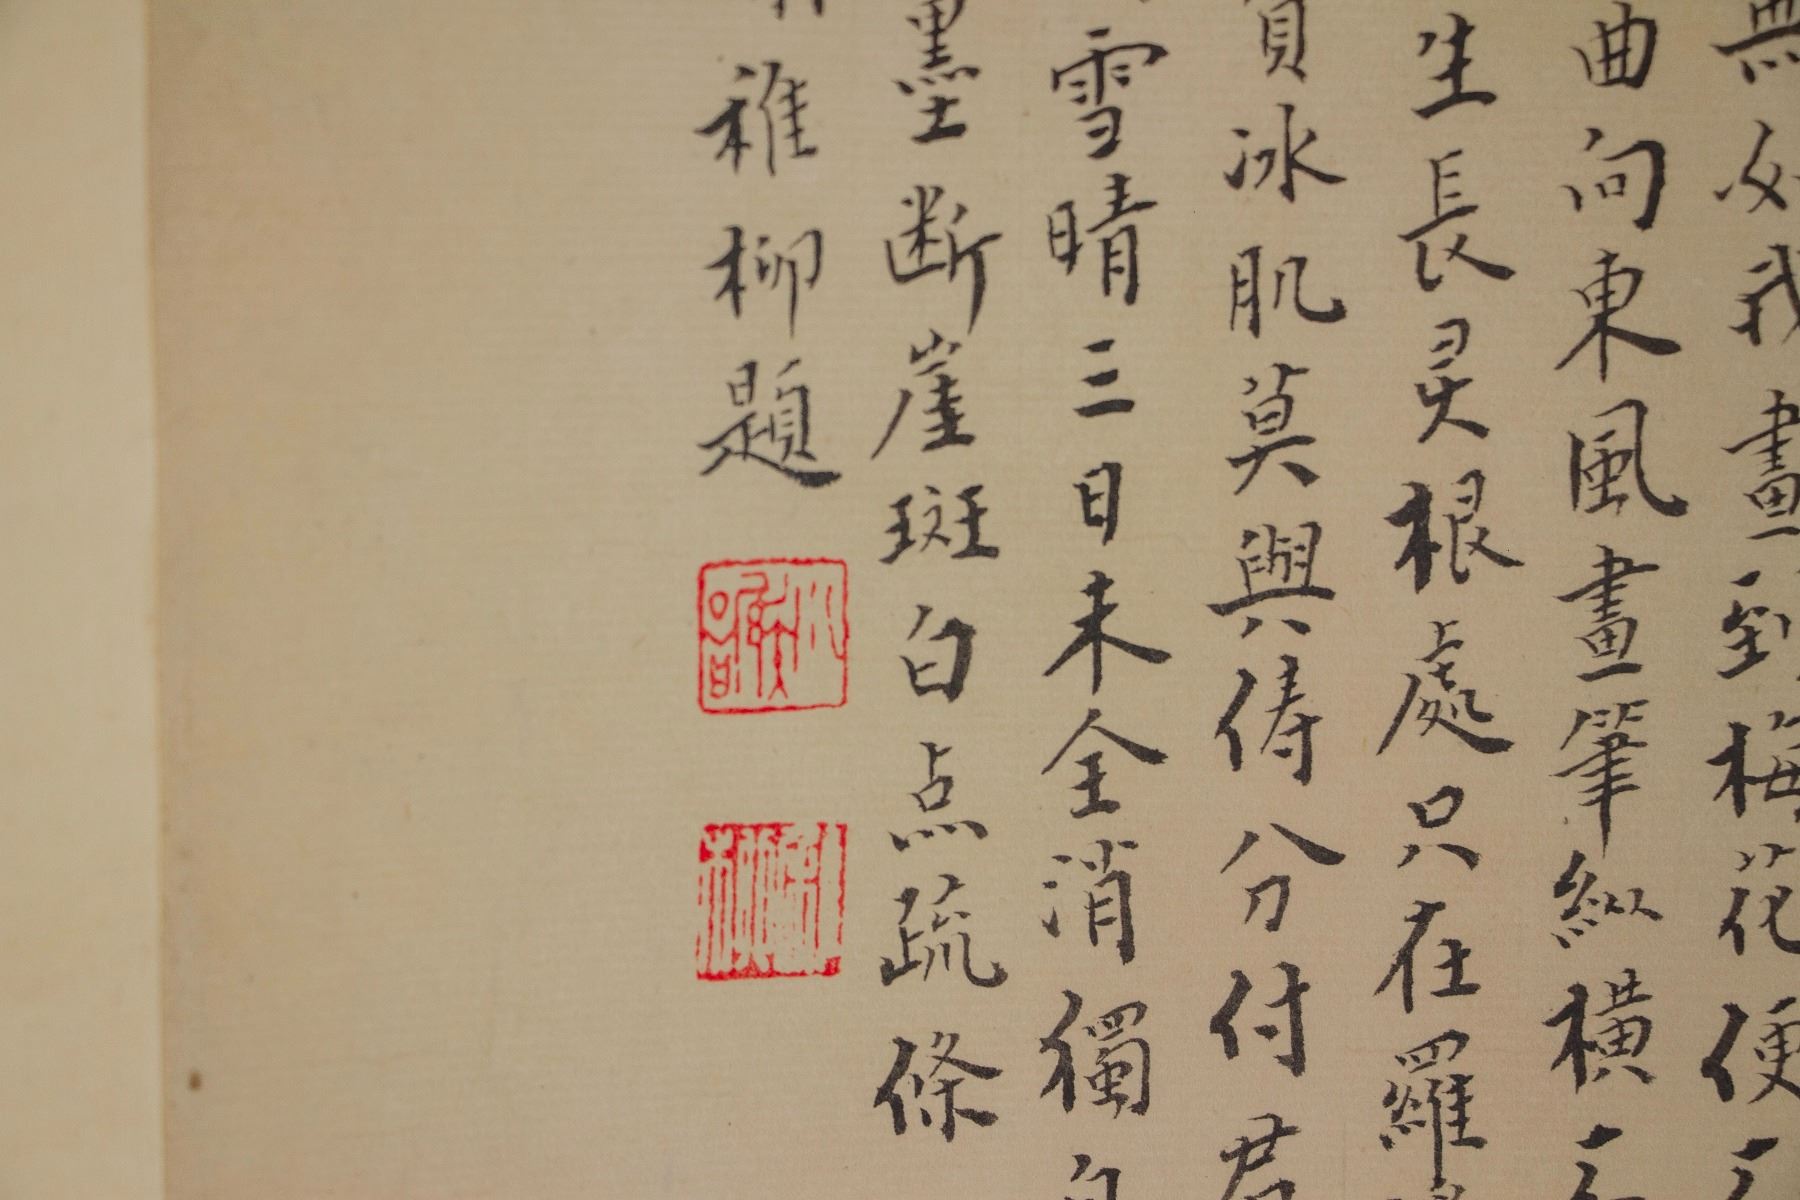 無如我畫到梅花便
曲向東風畫筆縱橫
生長灵根處只在羅
質冰肌莫與儔分付君
雪晴三日未全消獨自
墨断崖斑白点疏條
稚柳題